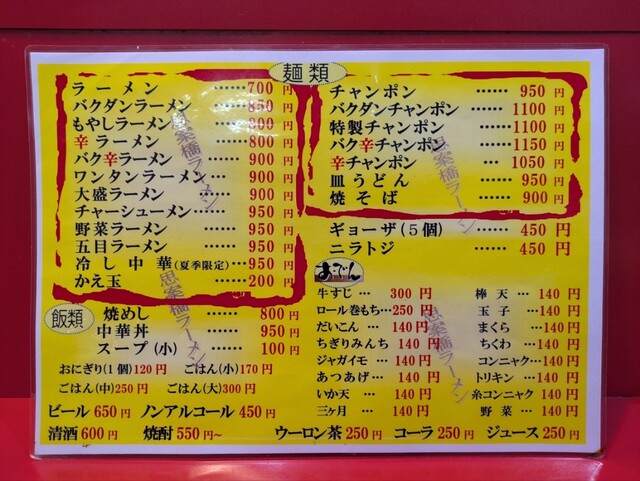 麺類
ラーメン ……700円
バクダンラーメン ……850円
もやしラーメン ……800円
辛ラーメン ……800円
バク辛ラーメン ……900円
ワンタンラーメン ……900円
大盛ラーメン ……900円
チャーシューメン ……950円
野菜ラーメン ……950円
五目ラーメン ……950円
冷し中華(夏季限定)…950円
かえ玉 ……200円
チャンポン ……950円
バクダンチャンポン ……1100円
特製チャンポン ……1100円
バク辛チャンポン ……1150円
辛チャンポン …1050円
皿うどん ……950円
焼そば ……900円
ギョーザ(5個) ……450円
ニラトジ ……450円
飯類
焼めし ……800円
中華丼 ……950円
スープ(小) ……100円
おにぎり(1個)120円 ごはん(小)170円
ごはん(中)250円 ごはん(大)300円
おでん
牛すじ …300円
ロール巻もち…250円
だいこん …140円
ちぎりみんち 140円
ジャガイモ …140円
あつあげ …140円
いか天 …140円
三ヶ月 …140円
棒天 …140円
玉子 …140円
まくら …140円
ちくわ …140円
コンニャク…140円
トリキン …140円
糸コンニャク 140円
野菜 …140円
ビール 650円 ノンアルコール 450円
清酒 600円 焼酎 550円~ ウーロン茶 250円 コーラ 250円 ジュース 250円
思案橋ラーメン
思案橋ラーメン
思案橋ラーメン
思案橋ラーメン